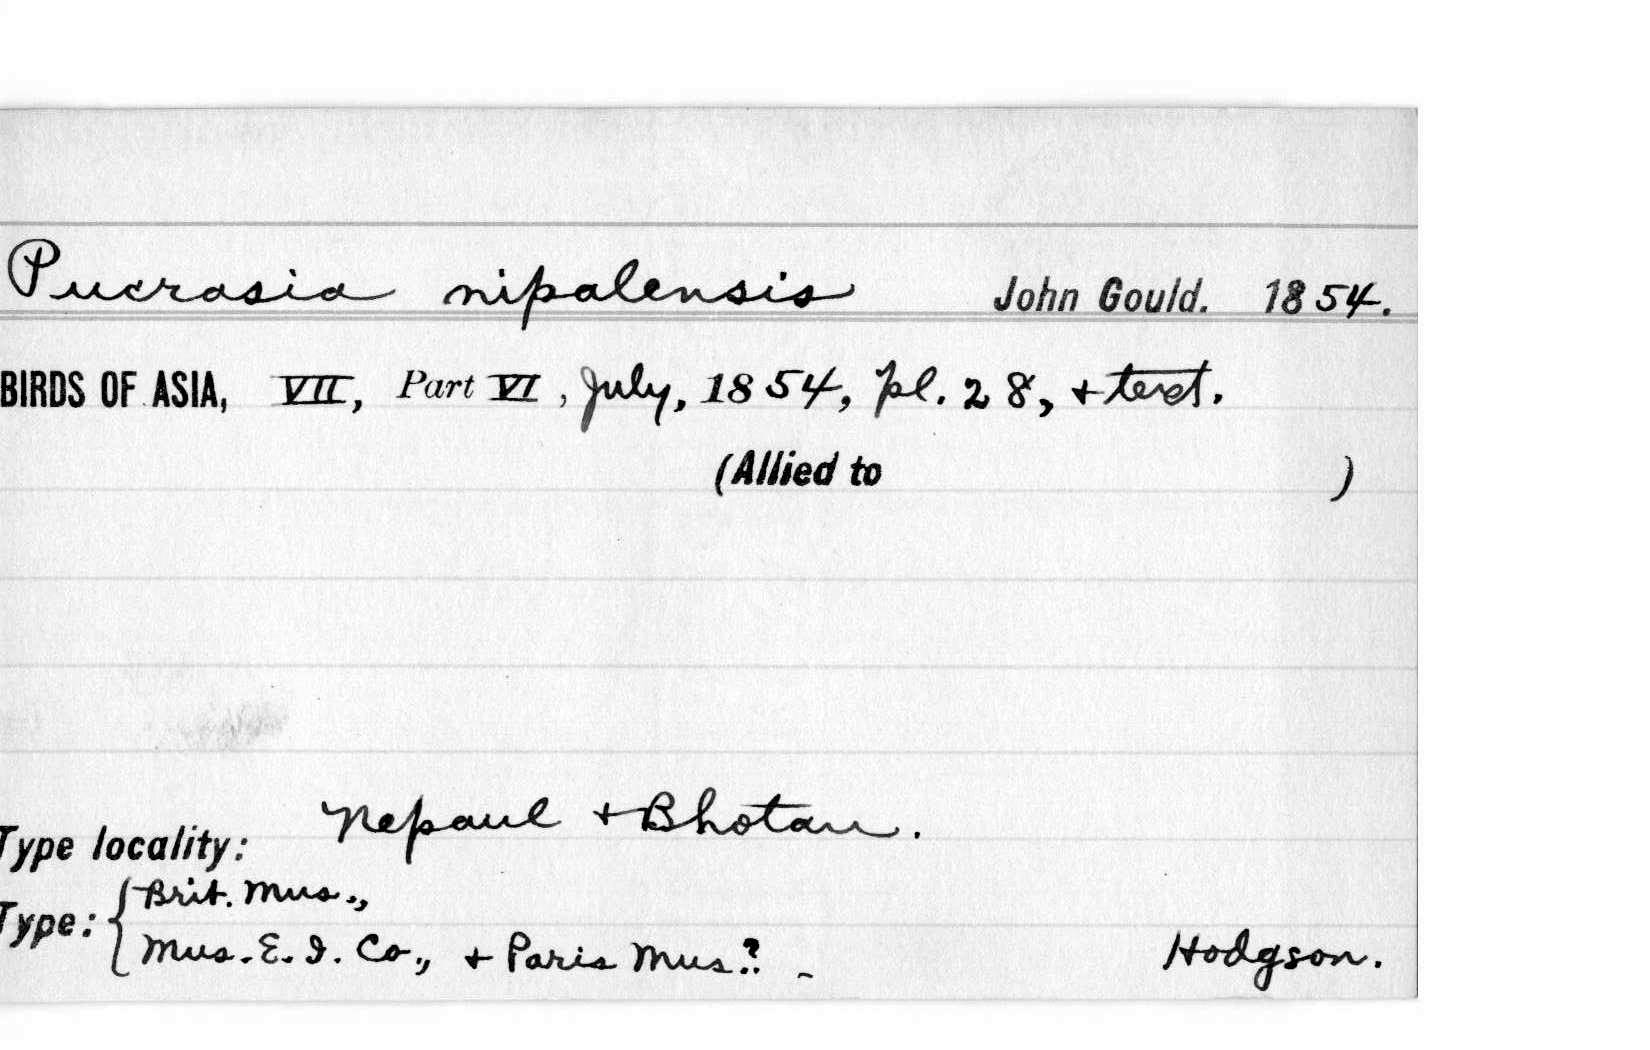 Pucrasia nipalensis John Gould. 1854.
BIRDS OF ASIA, VII, Part VI, July, 1854, pl. 28, + text.
(Allied to )
Type locality: Nepaul + Bhotan.
Type: { Brit. Mus.,
Mus. E. I. Co., + Paris Mus.? - Hodgson.